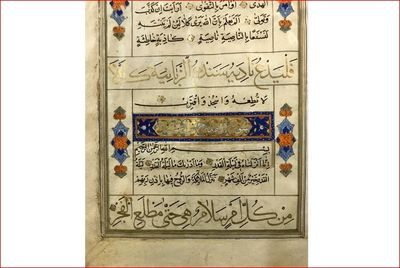 الهدى او امر بالتقوى ارايت ان كذب
وتولى الم يعلم بان الله يرى كلا لئن لم ينته
لنسفعا بالناصية ناصية كاذبة خاطئة
فليدع ناديه سندع الزبانية كلا
لا تطعه واسجد واقترب
بسم الله الرحمن الرحيم
انا انزلناه في ليلة القدر وما ادراك ما ليلة القدر ليلة
القدر خير من الف شهر تنزل الملئكة والروح فيها باذن ربهم
من كل امر سلام هي حتى مطلع الفجر